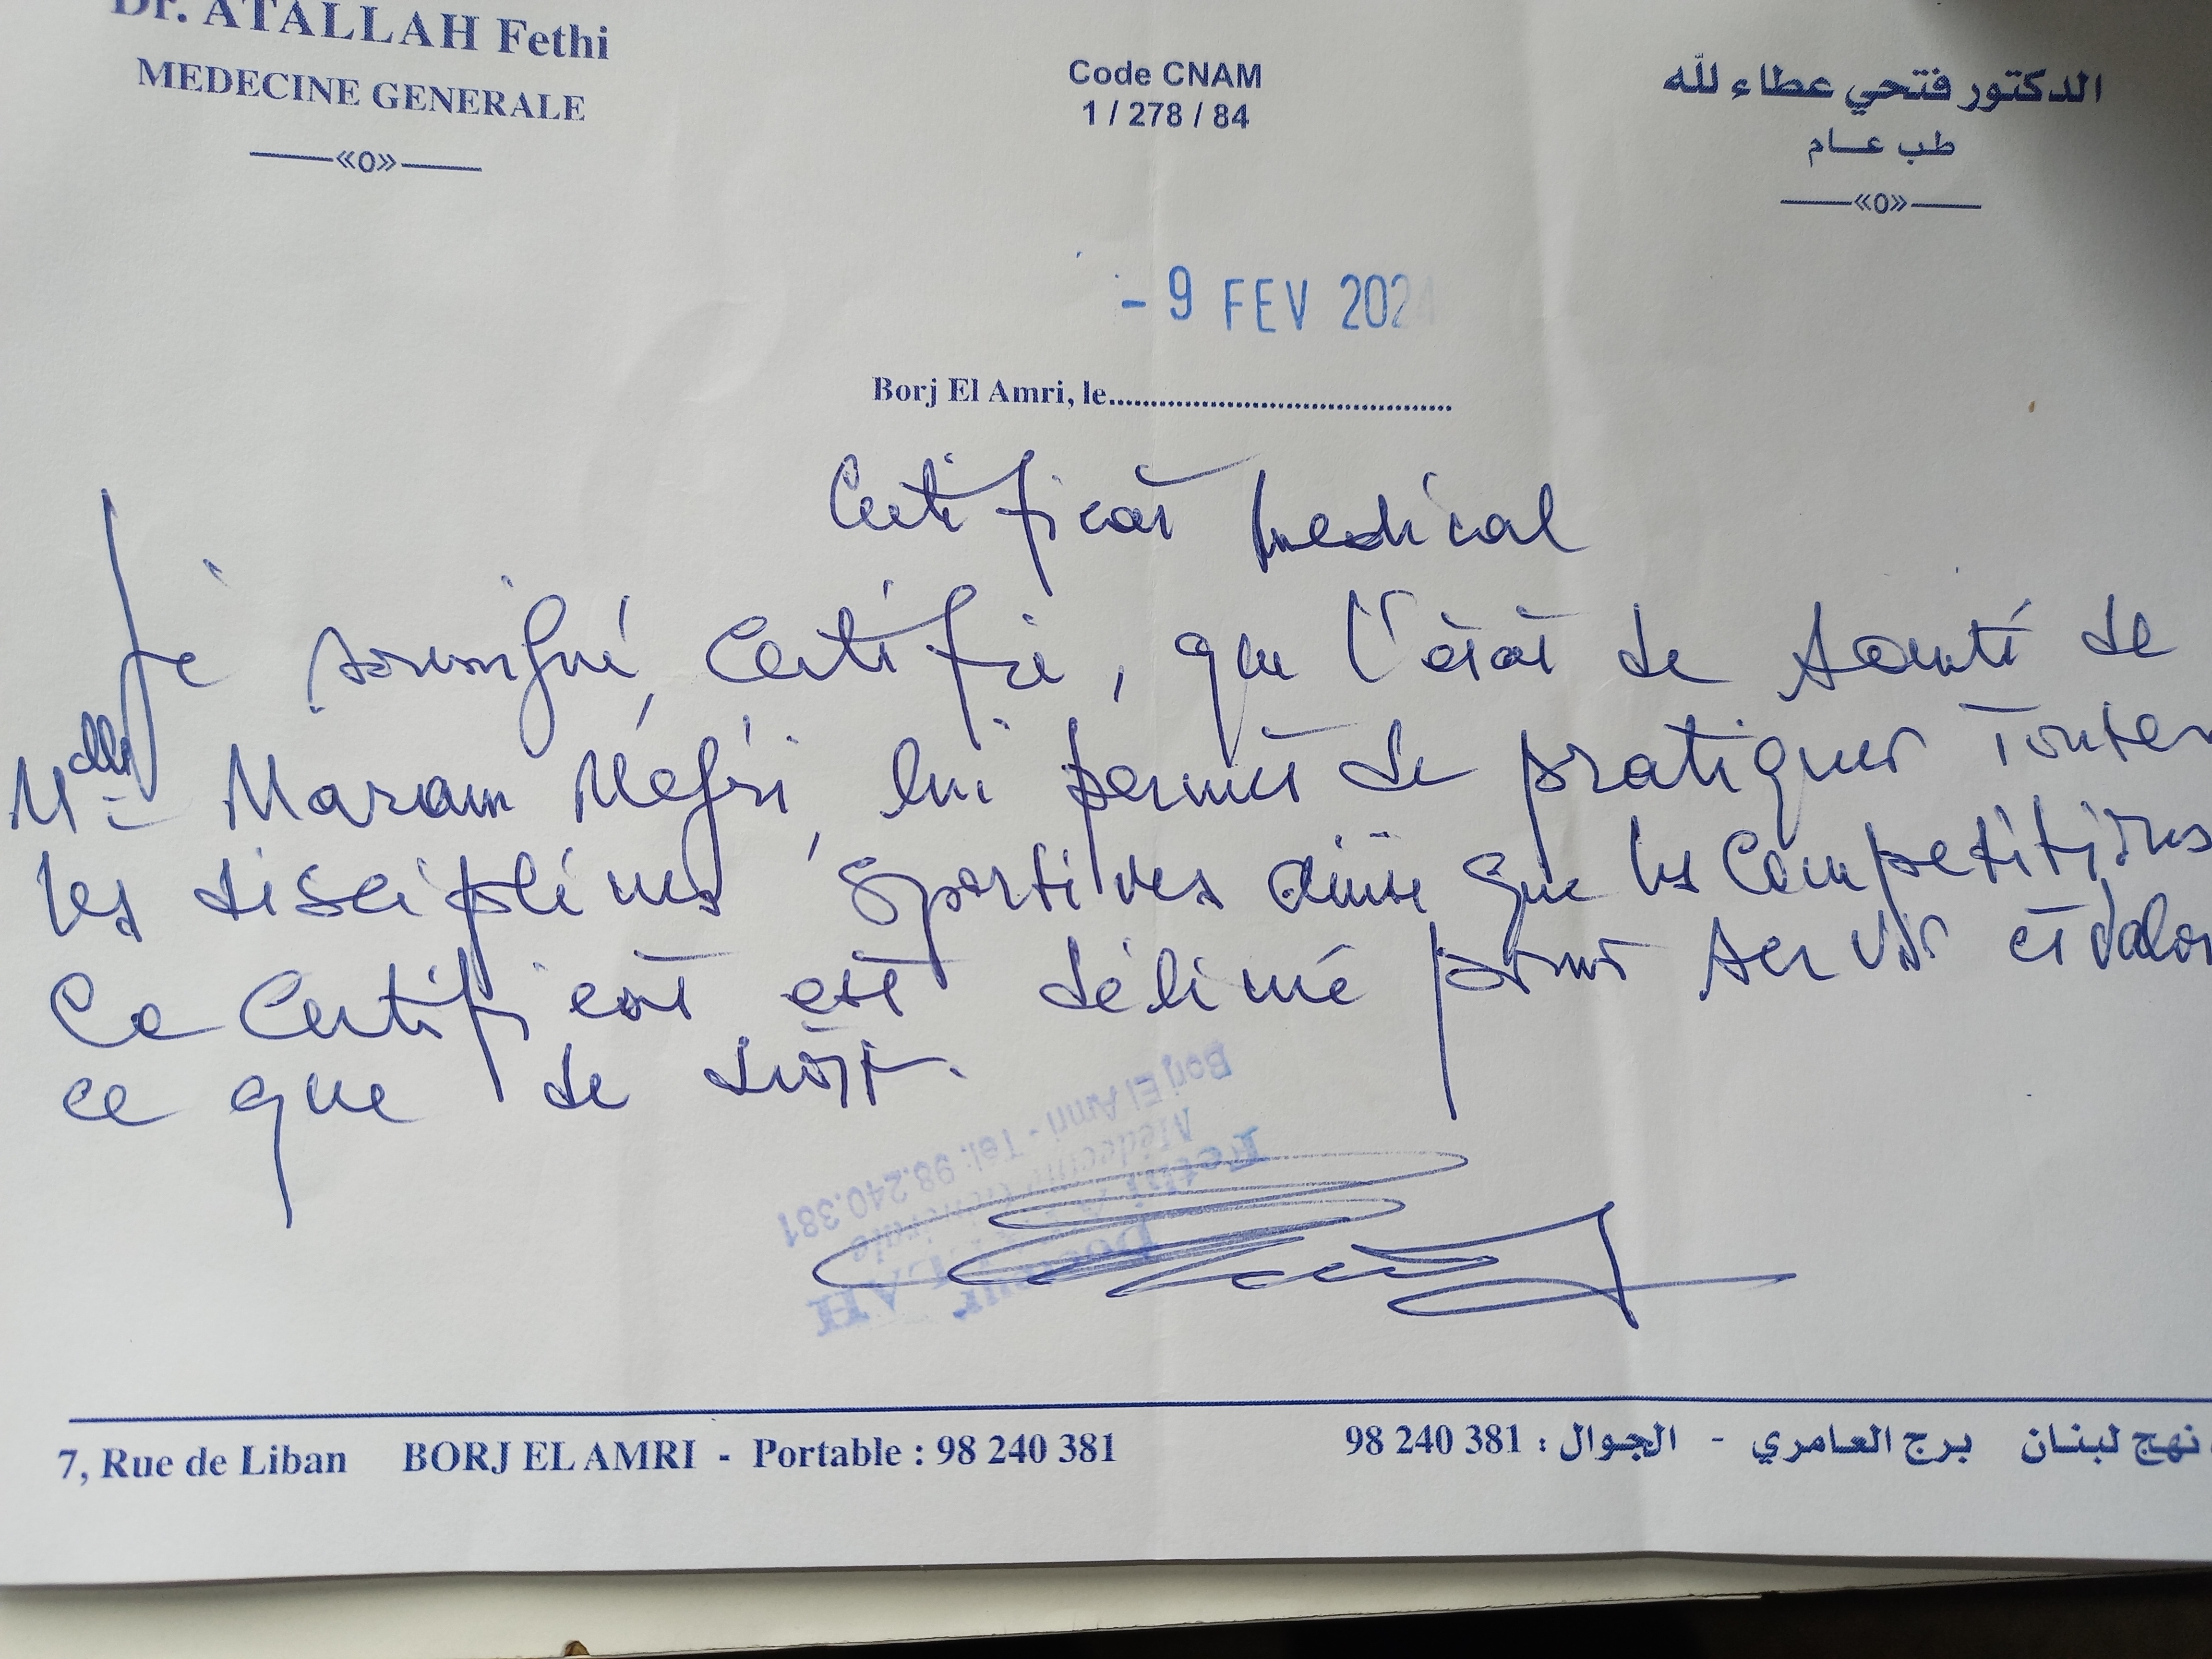 Dr. ATALLAH Fethi
MEDECINE GENERALE
Code CNAM
1 / 278 / 84
الدكتور فتحي عطاء لله
طب عام
- 9 FEV 2024
Borj El Amri, le
Certificat medical
Je soussigné, certifie, que l'état de santé de
Mdlle Maram Néfzi, lui permet de pratiquer toutes
les disciplines sportives ainsi que les compétitions
Ce certificat est délivré pour servir et valoir
ce que de droit.
Docteur
Fethi ATALLAH
Médecine Générale
Borj El Amri - Tel: 98.240.381
7, Rue de Liban BORJ EL AMRI - Portable : 98 240 381
نهج لبنان برج العامري - الجوال : 381 240 98